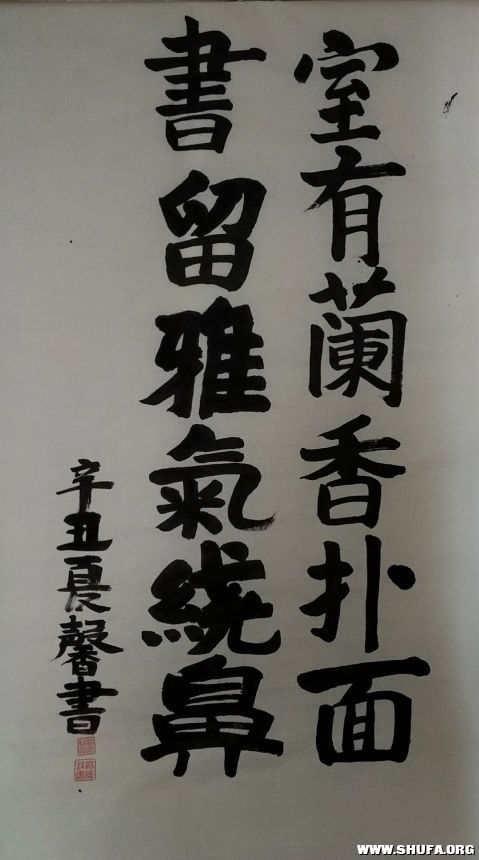 室有蘭香扑面
書留雅氣繞鼻
辛丑夏馨書
WWW.SHUFA.ORG